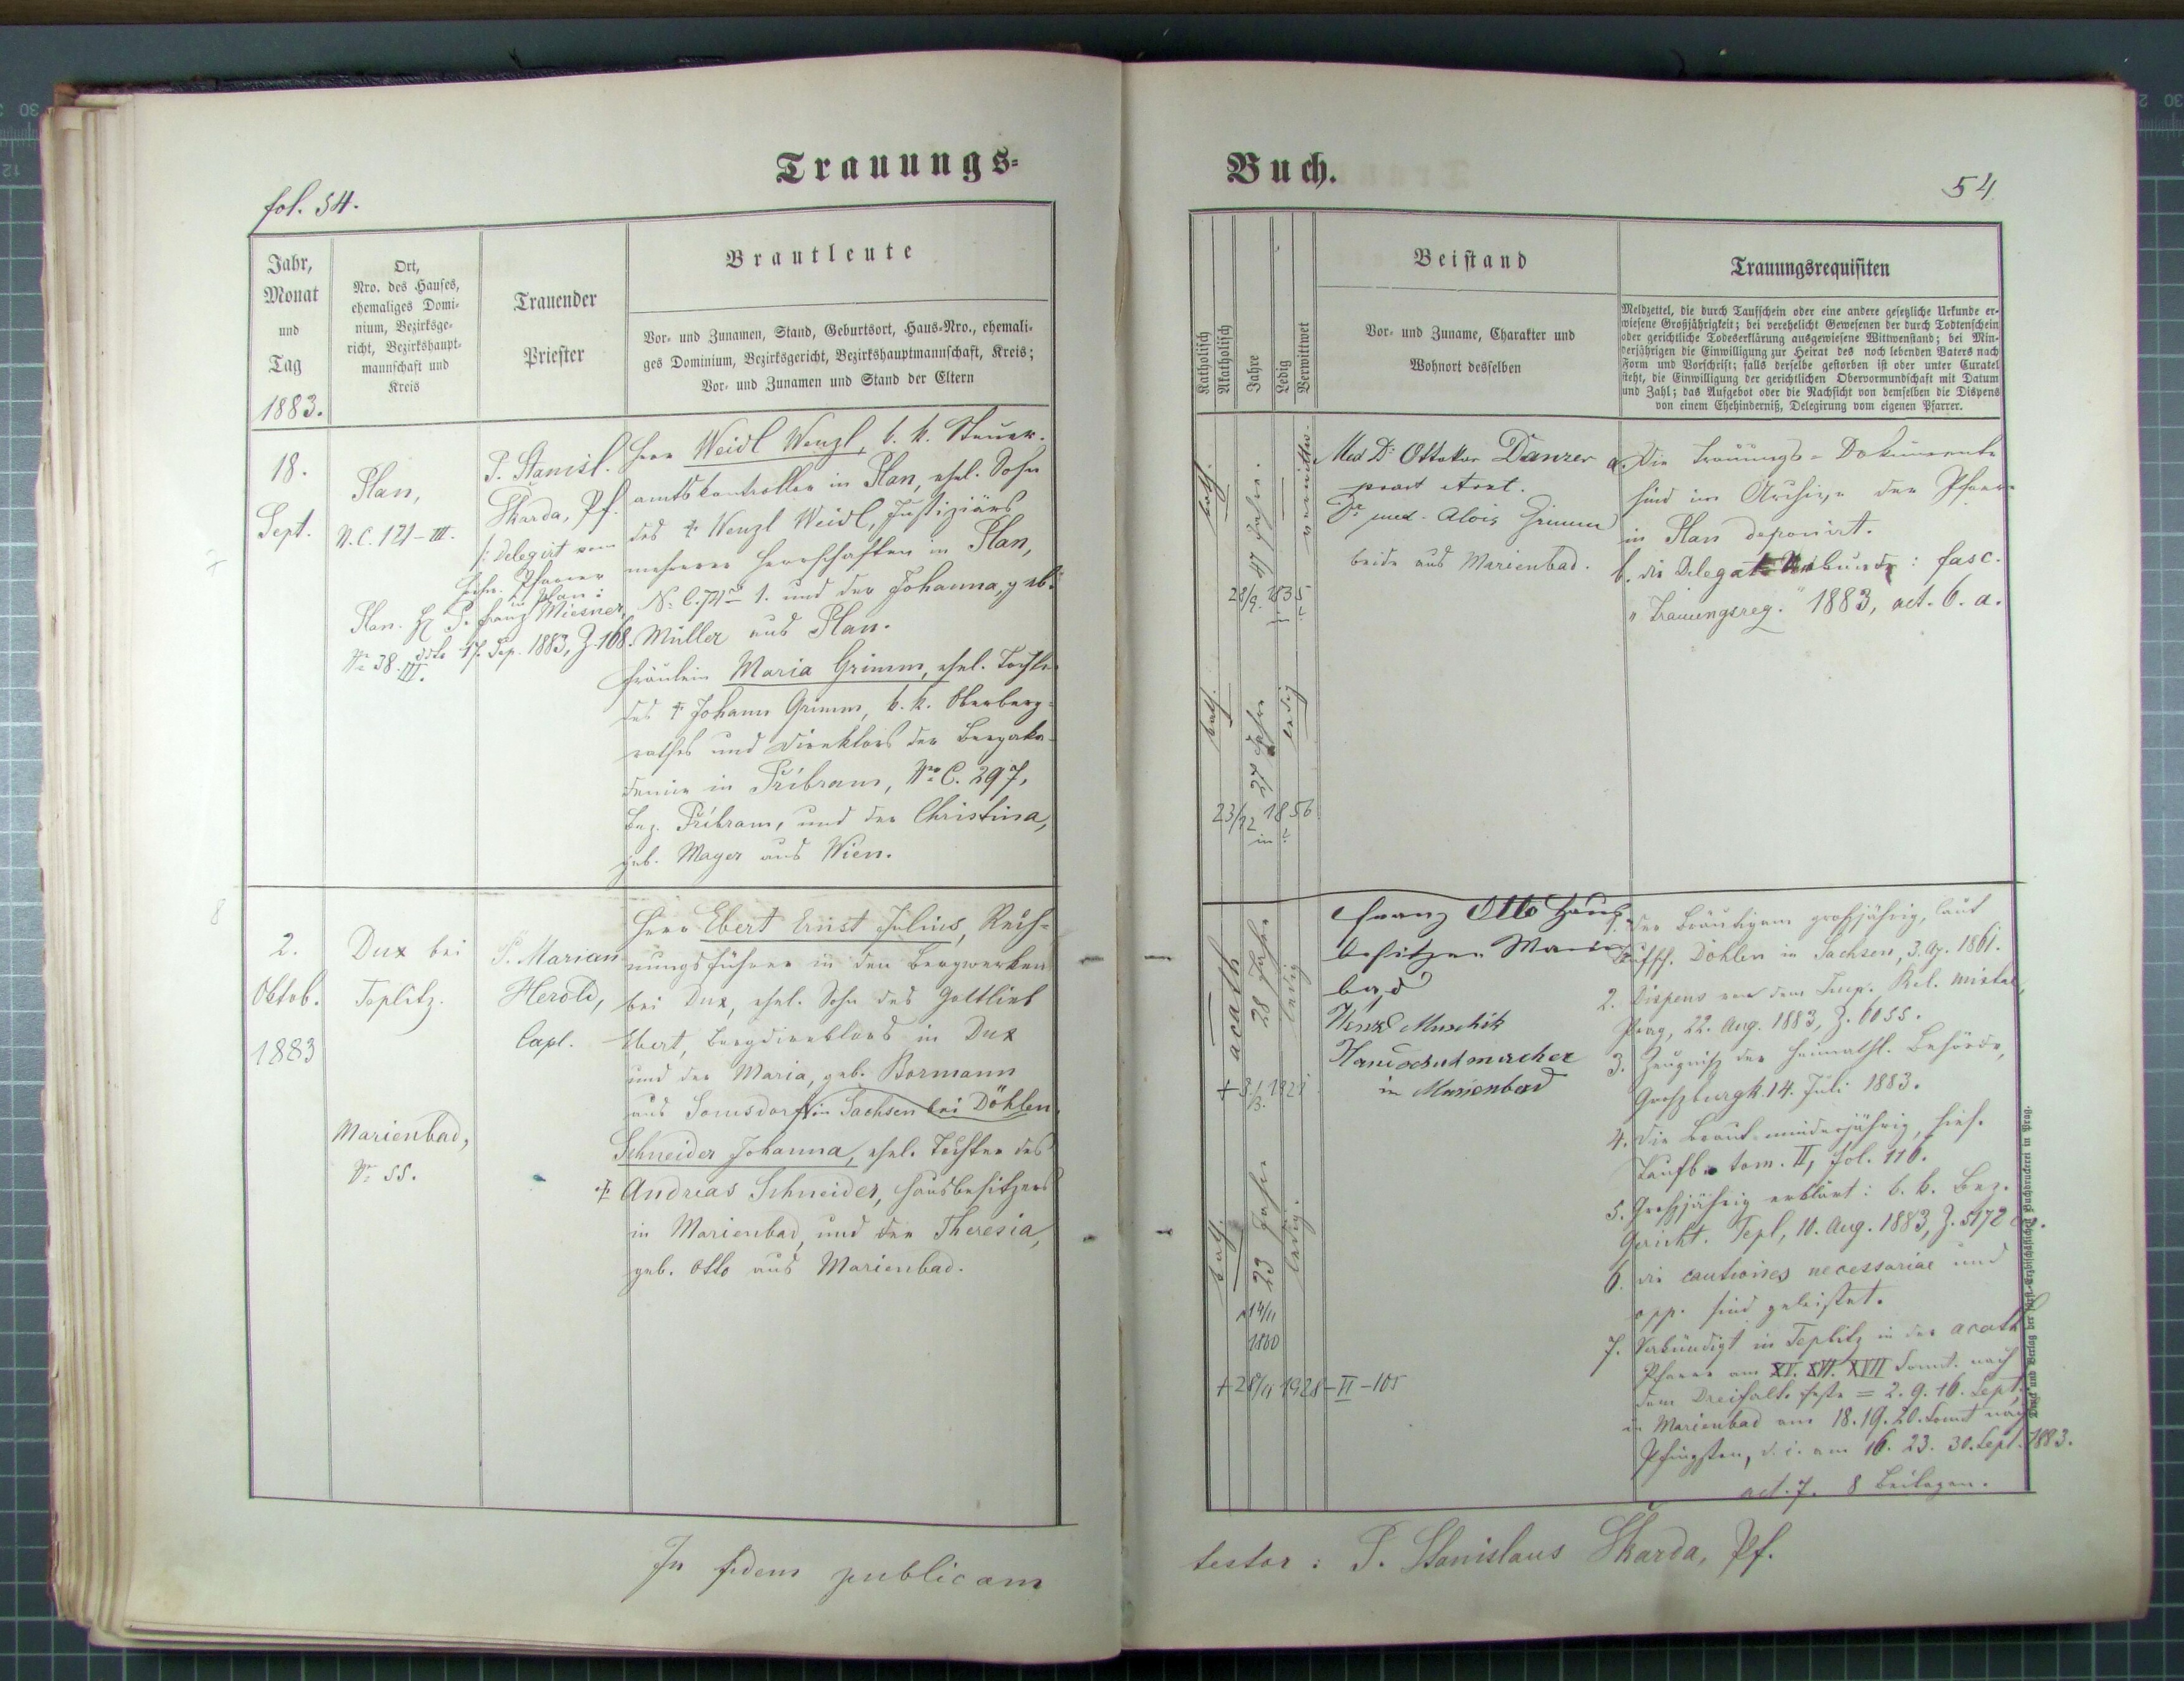 Trauungs=
Buch.
fol. 54.
54
Jahr,
Monat
und
Tag
1883.
Ort,
Nro. des Hauses,
ehemaliges Domi-
nium, Bezirksge-
richt, Bezirkshaupt-
mannschaft und
Kreis
Trauender
Priester
Brautleute
Vor- und Zunamen, Stand, Geburtsort, Haus-Nro., ehemali-
ges Dominium, Bezirksgericht, Bezirkshauptmannschaft, Kreis;
Vor- und Zunamen und Stand der Eltern
Katholisch
Akatholisch
Jahre
Ledig
Verwittwet
Beistand
Vor- und Zuname, Charakter und
Wohnort desselben
Trauungsrequisiten
Meldzettel, die durch Taufschein oder eine andere gesetzliche Urkunde er-
wiesene Großjährigkeit; bei verehelicht Gewesenen der durch Todtenschein
oder gerichtliche Todeserklärung ausgewiesene Wittwenstand; bei Min-
derjährigen die Einwilligung zur Heirat des noch lebenden Vaters nach
Form und Vorschrift; falls derselbe gestorben ist oder unter Curatel
steht, die Einwilligung der gerichtlichen Obervormundschaft mit Datum
und Zahl; das Aufgebot oder die Nachsicht von demselben die Dispens
von einem Ehehinderniß, Delegirung vom eigenen Pfarrer.
7
18.
Sept.
Plan,
N. C. 121 - III.
Plan.
No 38. III.
P. Stanisl.
Skarda, Pf.
/: delegirt vom
Hochw. Pfarrer
in Plan:
H P. Franz Miesner,
ddto 17. Sep. 1883, Z. 168.
Herr Weidl Wenzl, k. k. Steuer-
amtskontrollor in Plan, ehel. Sohn
des † Wenzl Weidl, Justiziärs
mehrerer Herrschaften in Plan,
No C. 1. und der Johanna, geb.
Müller aus Plan.
Fräulein Maria Grimm, ehel. Tochter
des † Johann Grimm, k. k. Oberberg-
rathes und Direktors der Bergaka-
demie in Přibram, No C. 297,
Bez. Přibram, und der Christina,
geb. Mayer aus Wien.
kath.
47 Jahre.
verwittw.
28/9. 1835
kath.
27 Jahre
ledig
23/12 1856
in ?
Med Dr Ottokar Danzer
pract Arzt.
Dr med. Alois Grimm
beide aus Marienbad.
a. Die Trauungs-Dokumente
sind im Archive der Pfarre
in Plan deponirt.
b. die Delegat Urkunde: fasc.
"Trauungsreg." 1883, act. 6. a.
8
2.
Oktob.
1883
Dux bei
Teplitz.
Marienbad,
No 55.
P. Marian
Herold,
Capl.
Herr Ebert Ernst Julius, Rech-
nungsführer in den Bergwerken
bei Dux, ehel. Sohn des Gottlieb
Ebert, Bergdirektors in Dux
und der Maria, geb. Bormann
aus Somsdorf in Sachsen bei Döhlen.
Schneider Johanna, ehel. Tochter des
† Andreas Schneider, Hausbesitzers
in Marienbad, und der Theresia,
geb. Otto aus Marienbad.
acath
28 Jahre
ledig
kath.
23 Jahre
ledig.
14/11
1860
+ 28/11 1928 - II - 105
Franz Otto Haus
besitzer Marien
bad
Wenzl Muschik
Handschuhmacher
in Marienbad
1. Der Bräutigam großjährig, laut
Taufsch. Döhlen in Sachsen, 3. Ag. 1861.
2. Dispens von dem Imp. Rel. mixtae,
Prag, 22. Aug. 1883, Z. 6055.
3. Zeugniß der heimathl. Behörde,
Großburgk 14. Juli 1883.
4. Die Braut minderjährig, hies.
Taufb. tom. II, fol. 116.
5. Großjährig erklärt: k. k. Bez.
Gericht. Tepl, 10. Aug. 1883, Z. 5172
6. die cautiones necessariae und
opp. sind geleistet.
7. Verkündigt in Teplitz in der acath
Pfarre am XV. XVI. XVII Sonnt. nach
dem Dreifalt. feste = 2. 9. 16. Sept.
in Marienbad am 18. 19. 20. Sonnt nach
Pfingsten, d. i. am 16. 23. 30. Sept. 1883.
act. 7. 8 Beilagen.
Druck und Verlag der fürst-Erzbischöflichen Buchdruckerei in Prag.
In fidem publicam
testor: P. Stanislaus Skarda, Pf.